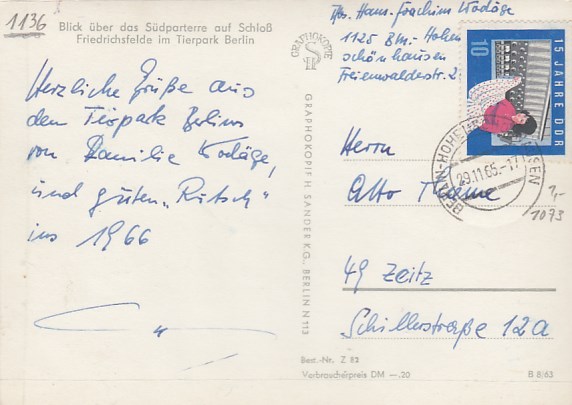 1136
Blick über das Südparterre auf Schloß
Friedrichsfelde im Tierpark Berlin
Herzliche Grüße aus
dem Tierpark Berlins
von Familie Kodäge,
und guten „Rutsch"
ins 1966
GRAPHOKOPIE
GRAPHOKOPIE H. SANDER KG., BERLIN N 113
Abs. Hans-Joachim Kodäge
1125 Bln.-Hohen
schönhausen
Freienwalderstr. 2
15 JAHRE DDR
10
29.11.65.-17
Herrn
Otto Thieme
1,-
1073
49 Zeitz
Schillerstraße 12a
Best.-Nr. Z 82
Verbraucherpreis DM —.20
B 8/63